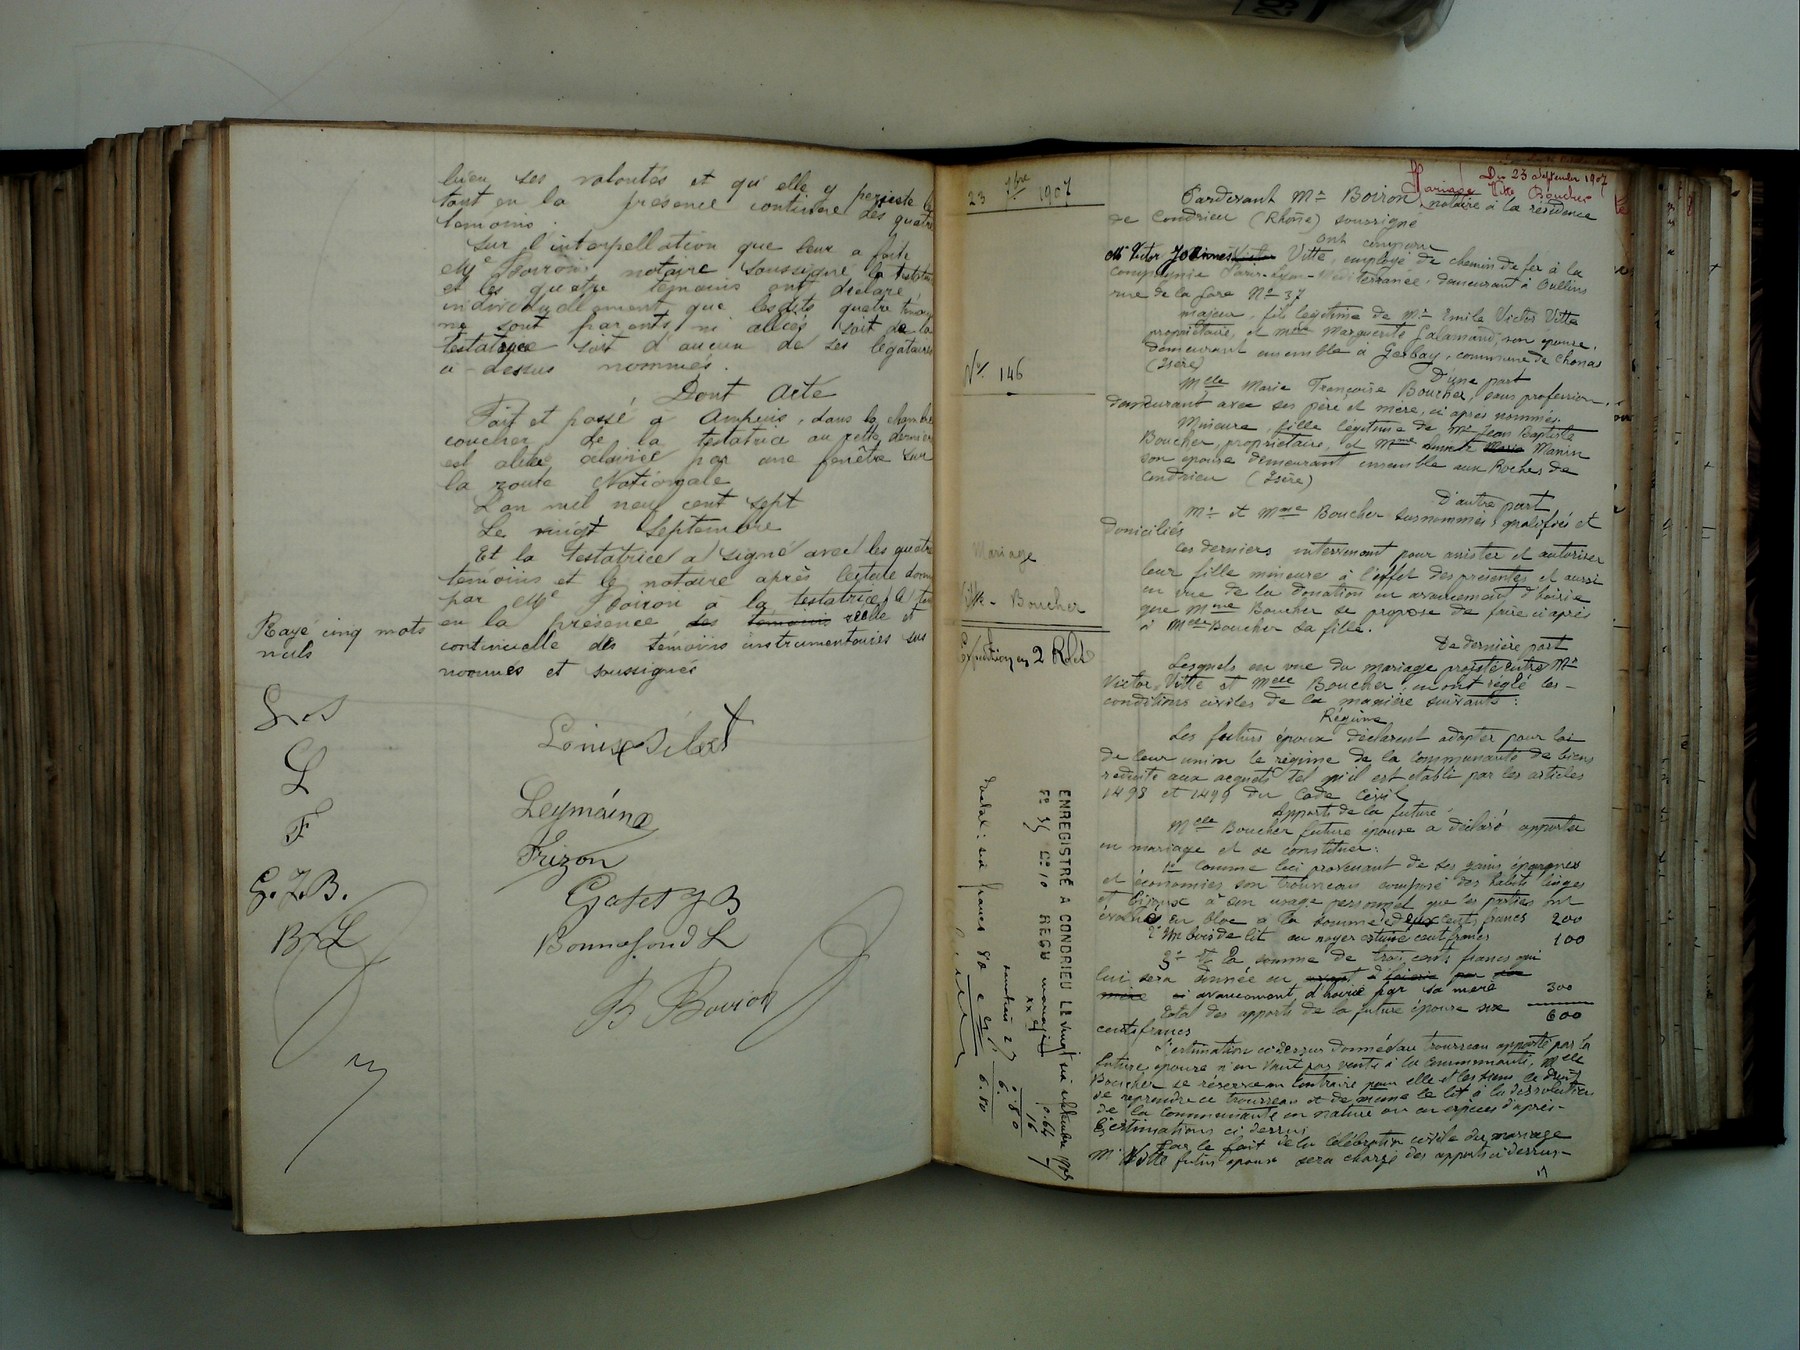 bien ses volontés et qu'elle y persiste le
tout en la présence continue des quatre
témoins.
Sur l'interpellation que leur a faite
Me Boiron notaire soussigné la testatrice
et les quatre témoins ont déclaré
individuellement que lesdits quatre témoins
ne sont parents ni alliés soit de la
testatrice soit d'aucun de ses légataires
ci-dessus nommés.
Dont Acte
Fait et passé à Ampuis, dans la chambre
coucher de la testatrice ou cette dernière
est alitée éclairée par une fenêtre sur
la route Nationale
L'an mil neuf cent sept
Le vingt Septembre
Et la testatrice a signé avec les quatre
témoins et le notaire après lecture donnée
par Me Boiron à la testatrice, le tout
en la présence des témoins réelle et
continuelle des témoins instrumentaires sus
nommés et soussignés
Rayé cinq mots
nuls
L
F
G. J. B.
B L
Louise Gilbert
Leymáin
Frizon
Gatet J B
Bonnefond L
B Boiron
23 7bre 1907
No 146
Mariage
Vitte - Boucher
Expédition en 2 Roles
ENREGISTRÉ A CONDRIEU LE vingt six septembre 1907
Fo 35 Co 10 REÇU
Mariage Vitte Boucher
Du 23 Septembre 1907
Pardevant Me Boiron, notaire à la résidence
de Condrieu (Rhône) soussigné
Ont comparu
Mr Victor Joannes Vitte, employé de chemin de fer à la
compagnie Paris-Lyon-Méditerranée, demeurant à Oullins
rue de la Gare No 37
majeur, fils légitime de Mr Emile Victor Vitte
propriétaire, et Mme Marguerite Galamand, son épouse,
demeurant ensemble à Gerbay, commune de Chonas
(Isère)
D'une part
Melle Marie Françoise Boucher, sans profession,
demeurant avec ses père et mère, ci après nommés.
Mineure, fille légitime de Mr Jean Baptiste
Boucher, propriétaire, et Mme Marie Manin
son épouse demeurant ensemble aux Roches de
Condrieu (Isère)
D'autre part
Mr et Mme Boucher susnommés, qualifiés et
domiciliés
Ces derniers intervenant pour assister et autoriser
leur fille mineure à l'effet des présentes et aussi
en vue de la donation en avancement d'hoirie
que Mme Boucher se propose de faire ci après
à Melle Boucher sa fille.
De dernière part
Lesquels en vue du mariage projeté entre Mr
Victor Vitte et Melle Boucher, en ont réglé les
conditions civiles de la manière suivante :
Régime
Les futurs époux déclarent adopter pour loi
de leur union le régime de la communauté de biens
réduite aux acquêts tel qu'il est établi par les articles
1498 et 1499 du Code Civil
Apports de la future
Melle Boucher future épouse a déclaré apporter
en mariage et se constituer :
1o Comme lui provenant de ses gains épargnes
et économies son trousseau composé des habits linges
et bijoux à son usage personnel que les parties ont
évalué en bloc à la somme de deux cents francs 200
2o Un bois de lit en noyer estimé cent francs 100
3o Et la somme de trois cents francs qui
lui sera donnée en avanct d'hoirie par sa
mère avancement d'hoirie par sa mère 300
Total des apports de la future épouse six 600
cents francs
L'estimation ci dessus donnée au trousseau apporté par la
future épouse n'en vaut pas vente à la communauté, Melle
Boucher se réserve au contraire pour elle et les siens le droit
de reprendre ce trousseau et de même le lit à la dissolution
de la communauté en nature ou en espèces d'après
l'estimation ci dessus
Par le fait de la célébration civile du mariage
Mr Vitte futur époux sera chargé des apports ci dessus